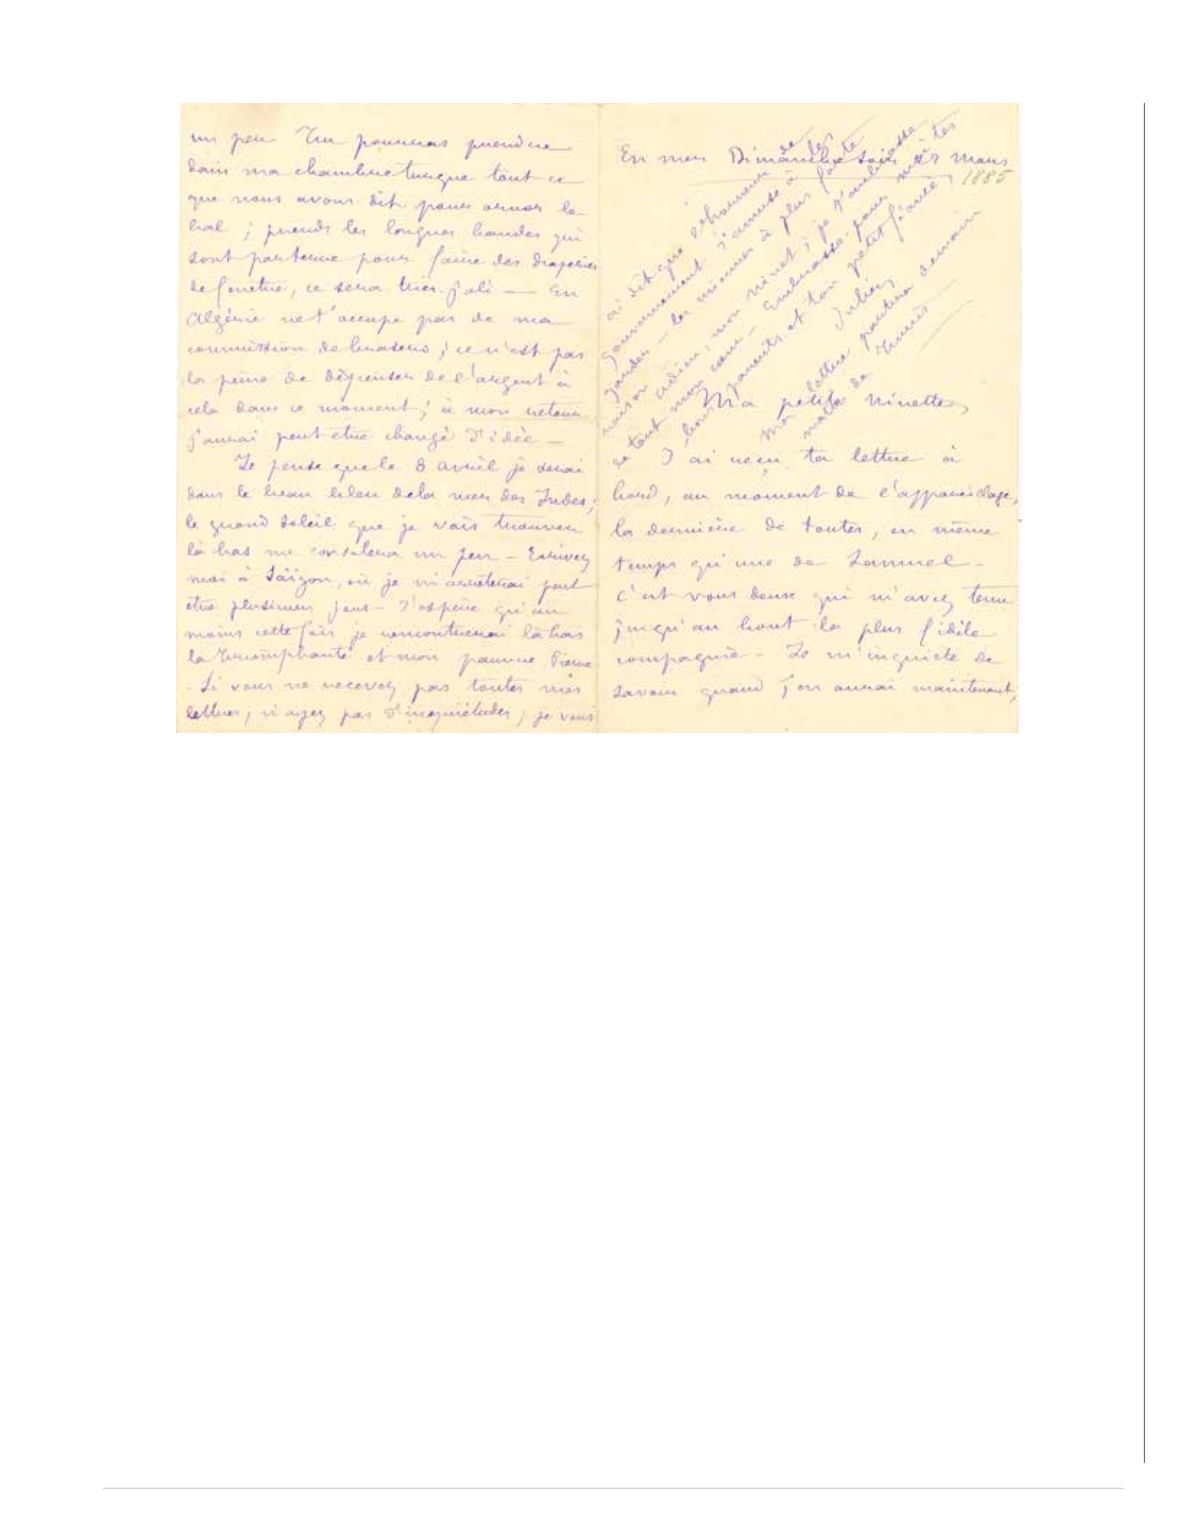 un peu Tu pourras prendre
dans ma chambre turque tout ce
que nous avons dit pour orner le
hal ; prends les longues bandes qui
sont par terre pour faire des draperies
de fenêtre, ce sera très joli — En
Algérie ne t'occupe pas de ma
commission de ; ce n'est pas
la peine de dépenser de l'argent à
cela dans ce moment ; à mon retour
j'aurai peut-être changé d'idée —
Je pense que le 8 avril je serai
dans le beau bleu de la mer des Indes ;
le grand soleil que je vais trouver
là bas me consolera un peu – Ecrivez
moi à Saïgon, où je m'arrêterai peut
etre plusieurs jours – J'espère qu'au
moins cette fois je rencontrerai là bas
la Triomphante et mon pauvre Pierre
– Si vous ne recevez pas toutes mes
lettres, n'ayez pas d'inquiétudes ; je vous
En mer Dimanche soir Mars
1885
ai dit que de
gouvernement s'amuse à les
garder – les miennes à plus forte
raison adieu, mon ninet ; je t'embrasse
de tout mon cœur – Embrasse pour moi tes
bons parents et ton petit frère,
Julien
Ma lettre partira demain
matin de Tunis
Ma petite Ninette,
J'ai reçu ta lettre à
bord, au moment de l'appareillage,
la dernière de toutes, en même
temps qu'une de Samuel –
C'est vous deux qui m'avez tenu
jusqu'au bout la plus fidèle
compagnie – Je m'inquiète de
savoir quand j'en aurai maintenant,